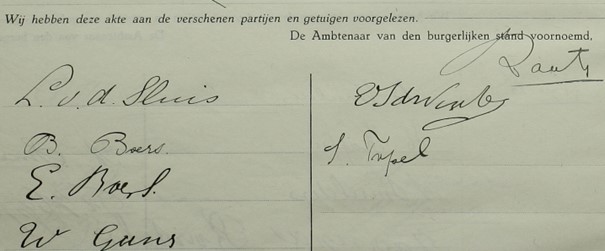 Wij hebben deze akte aan de verschenen partijen en getuigen voorgelezen.
De Ambtenaar van den burgerlijken stand voornoemd,
L. v. d. Sluis
B. Boers.
E. Boers.
W Guns
S. Topel